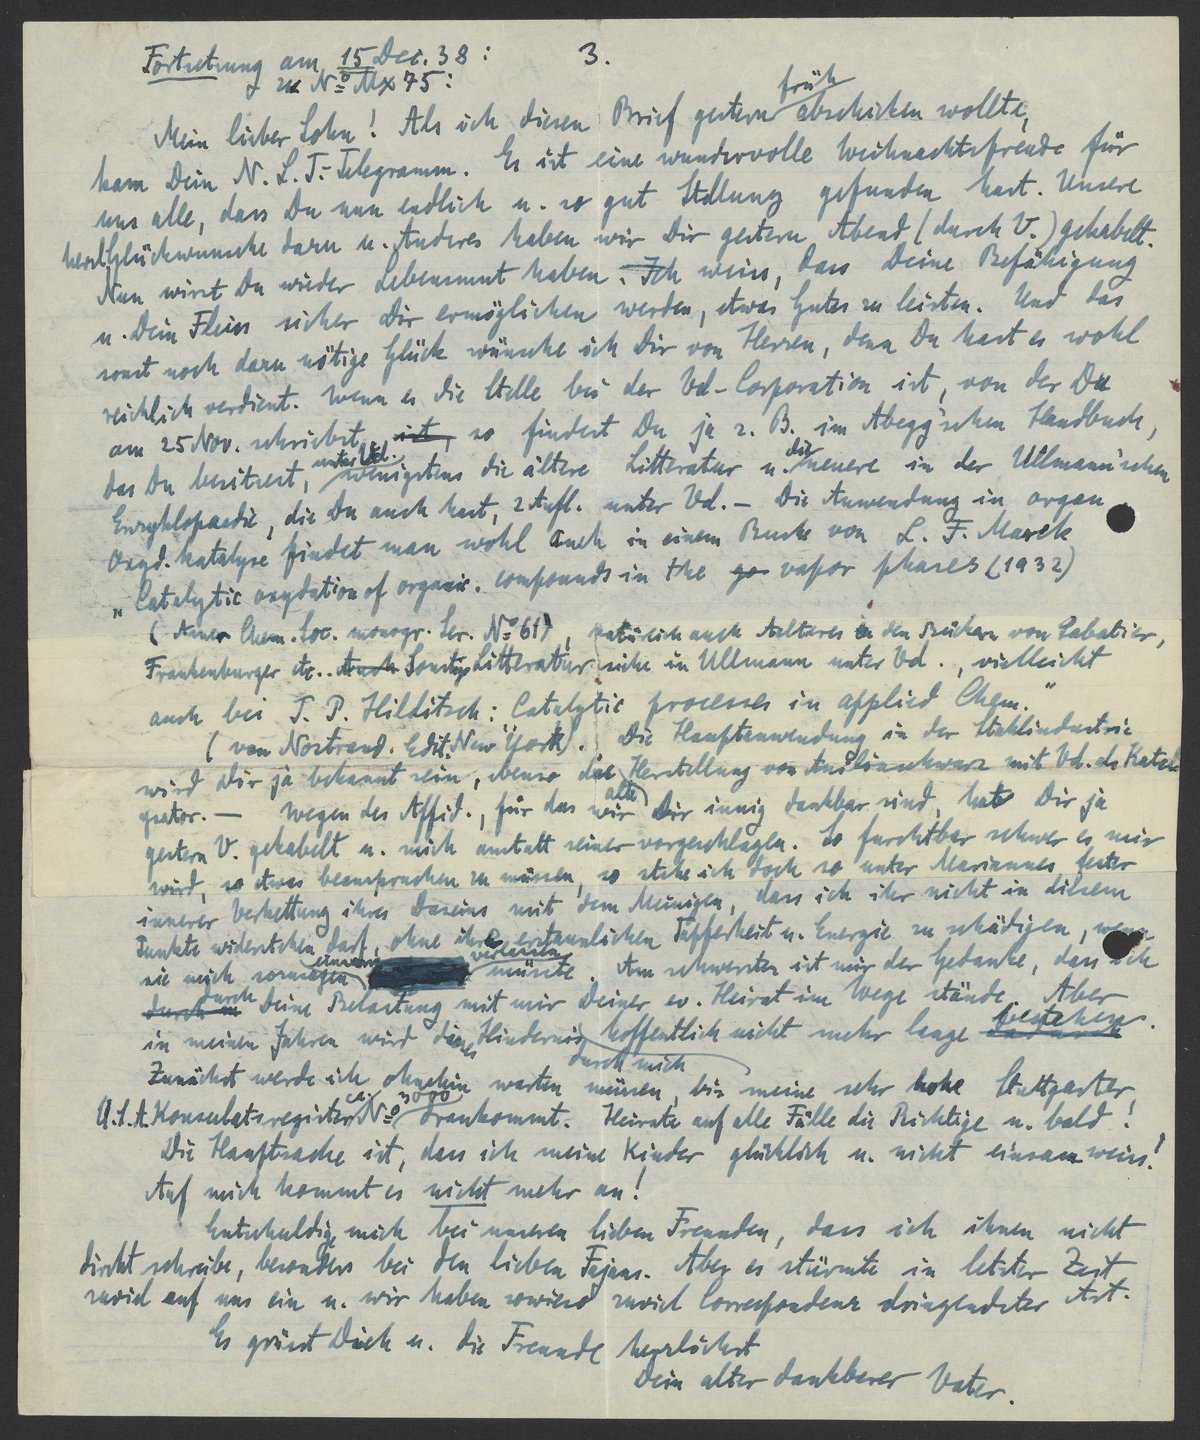 Fortsetzung am 15 Dec. 38: 3.
zu No Mx 75:
Mein lieber Sohn! Als ich diesen Brief gestern früh abschicken wollte,
kam Dein N. L. T.-Telegramm. Es ist eine wundervolle Weihnachtsfreude für
uns alle, dass Du nun endlich u. so gut Stellung gefunden hast. Unsere
herzl. Glückwünsche dazu u. Anderes haben wir Dir gestern Abend (durch V.) gekabelt.
Nun wirst Du wieder Lebensmut haben. Ich weiss, dass Deine Befähigung
u. Dein Fleiss sicher Dir ermöglichen werden, etwas Gutes zu leisten. Und das
sonst noch dazu nötige Glück wünsche ich Dir von Herzen, denn Du hast es wohl
reichlich verdient. Wenn es die Stelle bei der Vd-Corporation ist, von der Du
am 25 Nov. schriebst, ist, so findest Du ja z. B. im Abegg'schen Handbuch,
das Du besitzest, unter Vd. wenigstens die ältere Litteratur u. die neuere in der Ullmann'schen
Enzyklopaedie, die Du auch hast, 2 Aufl. unter Vd. – Die Anwendung in organ
Oxyd. Katalyse findet man wohl auch in einem Buche von L. F. Marek
"Catalytic oxydation of organic. compounds in the go vapor phases (1932)
(Amer Chem. Soc. monogr. Ser. No 61), natürlich auch Aelteres in den Büchern von Sabatier,
Frankenburger etc.. Auch Sonstige Litteratur siehe in Ullmann unter Vd., vielleicht
auch bei T. P. Hilditsch: Catalytic processes in applied Chem."
(van Nostrand. Edit. New York). Die Hauptanwendung in der Stahlindustrie
wird Dir ja bekannt sein, ebenso die Herstellung von Anilinschwarz mit Vd. als Kataly
sator. – Wegen des Affid., für das wir alle Dir innig dankbar sind, hat Dir ja
gestern V. gekabelt u. mich anstatt seiner vorgeschlagen. So furchtbar schwer es mir
wird, so etwas beanspruchen zu müssen, so stehe ich doch so unter Mariannes fester
innerer Verkettung ihres Daseins mit dem Meinigen, dass ich ihr nicht in diesem
Punkte widerstehen darf, ohne ihre erstaunlichen Tapferkeit u. Energie zu schädigen, wenn
sie mich sozusagen einsam verlassen müsste. Am schwersten ist mir der Gedanke, dass ich
durch m durch Deine Belastung mit mir Deiner ev. Heirat im Wege stände. Aber
in meinen Jahren wird dieses Hindernis durch mich hoffentlich nicht mehr lange bestehen.
Zunächst werde ich ohnehin warten müssen, bis meine sehr hohe Stuttgarter,
U.S.A. Konsulatsregister No ca. 3000 drankommt. Heirate auf alle Fälle die Richtige u. bald!
Die Hauptsache ist, dass ich meine Kinder glücklich u. nicht einsam weiss!
Auf mich kommt es nicht mehr an!
Entschuldige mich bei unseren lieben Freunden, dass ich ihnen nicht
direkt schreibe, besonders bei den lieben Fajans. Aber es stürmte in letzter Zeit
zuviel auf uns ein u. wir haben sowieso zuviel Correspondenz dringendster Art.
Es grüsst Dich u. die Freunde herzlichst
Dein alter dankbarer Vater.